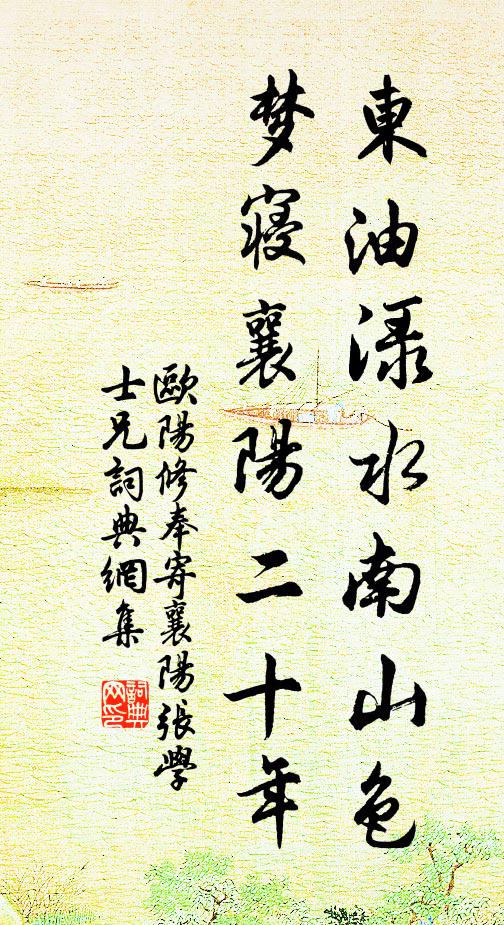 東油渌水南山色
梦寝襄陽二十年
歐陽修奉寄襄陽張學
士兄詞典網集
詞典
网印